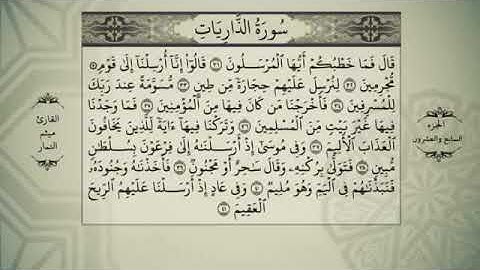 سُورَةُ الذَّارِيَاتِ
قَالَ فَمَا خَطْبُكُمْ أَيُّهَا الْمُرْسَلُونَ ٣١ قَالُوا إِنَّا أُرْسِلْنَا إِلَى قَوْمٍ
مُجْرِمِينَ ٣٢ لِنُرْسِلَ عَلَيْهِمْ حِجَارَةً مِن طِينٍ ٣٣ مُسَوَّمَةً عِندَ رَبِّكَ
لِلْمُسْرِفِينَ ٣٤ فَأَخْرَجْنَا مَن كَانَ فِيهَا مِنَ الْمُؤْمِنِينَ ٣٥ فَمَا وَجَدْنَا
فِيهَا غَيْرَ بَيْتٍ مِنَ الْمُسْلِمِينَ ٣٦ وَتَرَكْنَا فِيهَا ءَايَةً لِلَّذِينَ يَخَافُونَ
الْعَذَابَ الْأَلِيمَ ٣٧ وَفِي مُوسَى إِذْ أَرْسَلْنَاهُ إِلَى فِرْعَوْنَ بِسُلْطَانٍ
مُبِينٍ ٣٨ فَتَوَلَّى بِرُكْنِهِ وَقَالَ سَاحِرٌ أَوْ مَجْنُونٌ ٣٩ فَأَخَذْنَاهُ وَجُنُودَهُ
فَنَبَذْنَاهُمْ فِي الْيَمِّ وَهُوَ مُلِيمٌ ٤٠ وَفِي عَادٍ إِذْ أَرْسَلْنَا عَلَيْهِمُ الرِّيحَ
الْعَقِيمَ ٤١
الجزء
السابع والعشرون
القارئ
ميثم
التمار